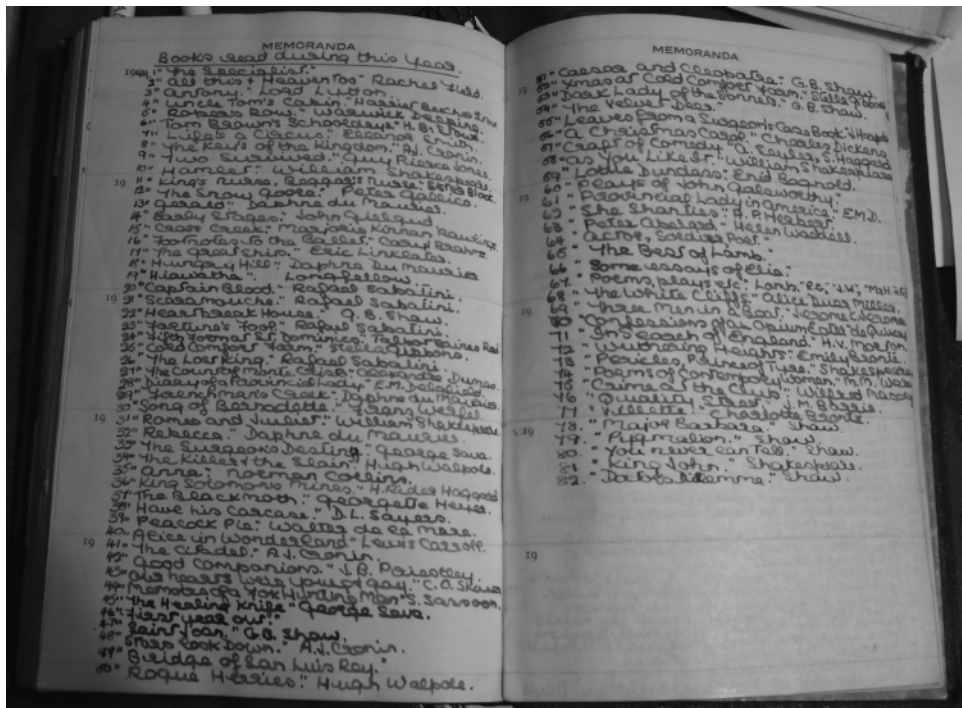 MEMORANDA
Books read during this Year.
1944 1" "The Specialist."
2" "All this & Heaven Too" Rachel Field.
3" "Antony." Lord Lytton.
4" "Uncle Tom's Cabin." Harriet Beecher Stowe
5" "Roper's Row." Warwick Deeping.
6" "Tom Brown's Schooldays" H.B.
7" "Life's a Circus." Eleanor Smith.
8" "The Keys of the Kingdom." A.J. Cronin.
9" "Two Survived." Guy Pierce Jones.
10" "Hamlet." William Shakespeare.
11" "King's Nurse, Beggar's Nurse." Sister Black.
19 12" "The Snow Goose." Peter Gallico.
13" "Gerald" Daphne du Maurier.
14" "Early Stages." John Gielgud
15" "Cross Creek." Marjorie Kinnan Rawlings.
16" "Footnotes to the Ballet." Caryl Brahms
17" "The Great Ship." Eric Linklater.
18" "Hungry Hill" Daphne du Maurier
19" "Hiawatha". Longfellow.
20" "Captain Blood." Rafael Sabatini.
19 21" "Scaramouche." Rafael Sabatini.
22" "Heartbreak House." G.B. Shaw.
23" "Fortune's Fool." Rafael Sabatini.
24" "Fifth Form at St. Dominics." Talbot Baines Reed
25" "Cold Comfort Farm" Stella Gibbons.
26" "The Lost King." Rafael Sabatini.
27" "The Count of Monte Cristo" Alexandre Dumas.
28" "Diary of a Provincial Lady" E.M. Delafield.
29" "Frenchman's Creek." Daphne du Maurier.
30" "Song of Bernadette." Franz Werfel.
19 31" "Romeo and Juliet." William Shakespeare
32" "Rebecca." Daphne du Maurier.
33" "The Surgeon's Destiny" George Sava.
34" "The Killer & the Slain." Hugh Walpole.
35" "Anna." Norman Collins.
36" "King Solomon's Mines." H. Rider Haggard
37" "The Black Moth." Georgette Heyer.
38" "Have his carcase." D.L. Sayers.
39" "Peacock Pie." Walter de la Mare.
40" "Alice in Wonderland" Lewis Carroll.
19 41" "The Citadel." A.J. Cronin.
42" "Good Companions." J.B. Priestley.
43" "Our hearts were young & gay." C.O. Skinner
44" "Memoirs of a Fox Hunting Man" S. Sassoon.
45" "The Healing Knife" George Sava.
46" "First year out."
47" "Saint Joan." G.B. Shaw.
48" "Stars Look Down." A.J. Cronin.
49" "Bridge of San Luis Rey."
50" "Rogue Herries." Hugh Walpole.
MEMORANDA
19 51" "Caesar and Cleopatra." G.B. Shaw.
52" "Xmas at Cold Comfort Farm." Stella Gibbons
53" "Dark Lady of the Sonnets." G.B. Shaw.
54" "The Velvet Deer."
55" "Leaves from a Surgeon's Case Book." J. Harpole
56" "A Christmas Carol." Charles Dickens
57" "Craft of Comedy" A. Seyler, S. Haggard
58" "As You Like It." William Shakespeare
59" "Lottie Dundass." Enid Bagnold.
19 60" "Plays of John Galsworthy."
61" "Provincial Lady in America." E.M.D.
62" "She Shanties". A.P. Herbert.
63" "Peter Abelard." Helen Waddell.
64" "Actor, Soldier, Poet."
65 "The Best of Lamb."
66 "Some essays of Elia."
67. "Poems, plays etc." Lamb,
68 "The White Cliffs" Alice Duer Miller.
19 69 "Three Men in a Boat." Jerome K. Jerome
70 "Confessions of an Opium Eater" de Quincey
71 "In Search of England." H.V. Morton.
72 "Wuthering Heights" Emily Bronte.
73 "Pericles, Prince of Tyre." Shakespeare
74 "Poems of Contempory Women." M.M.
75 "Crime at the Club" Wilfred
76 "Quality Street" J.M. Barrie.
77 "Villette" Charlotte Bronte.
19 78. "Major Barbara." Shaw.
79. "Pigmalion." Shaw.
80. "You never can Tell." Shaw.
81 "King John." Shakespeare.
82. "Doctor's Dilemma." Shaw.
19